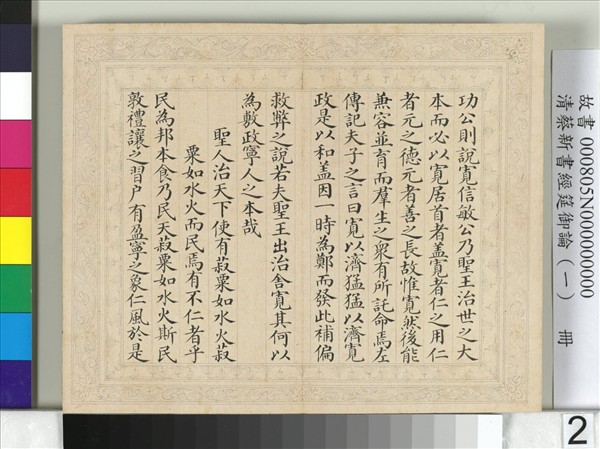 功公則說寬信敏公乃聖王治世之大
本而必以寬居首者蓋寬者仁之用仁
者元之德元者善之長故惟寬然後能
兼容並育而羣生之衆有所託命焉左
傳記夫子之言曰寬以濟猛猛以濟寬
政是以和蓋因一時為鄭而發此補偏
救弊之說若夫聖王出治舍寬其何以
為敷政寧人之本哉
聖人治天下使有菽粟如水火菽
粟如水火而民焉有不仁者乎
民為邦本食乃民天菽粟如水火斯民
敦禮讓之習户有盈寧之象仁風於是
故書000805N000000000
清蔡新書經筵御論(一) 冊
2